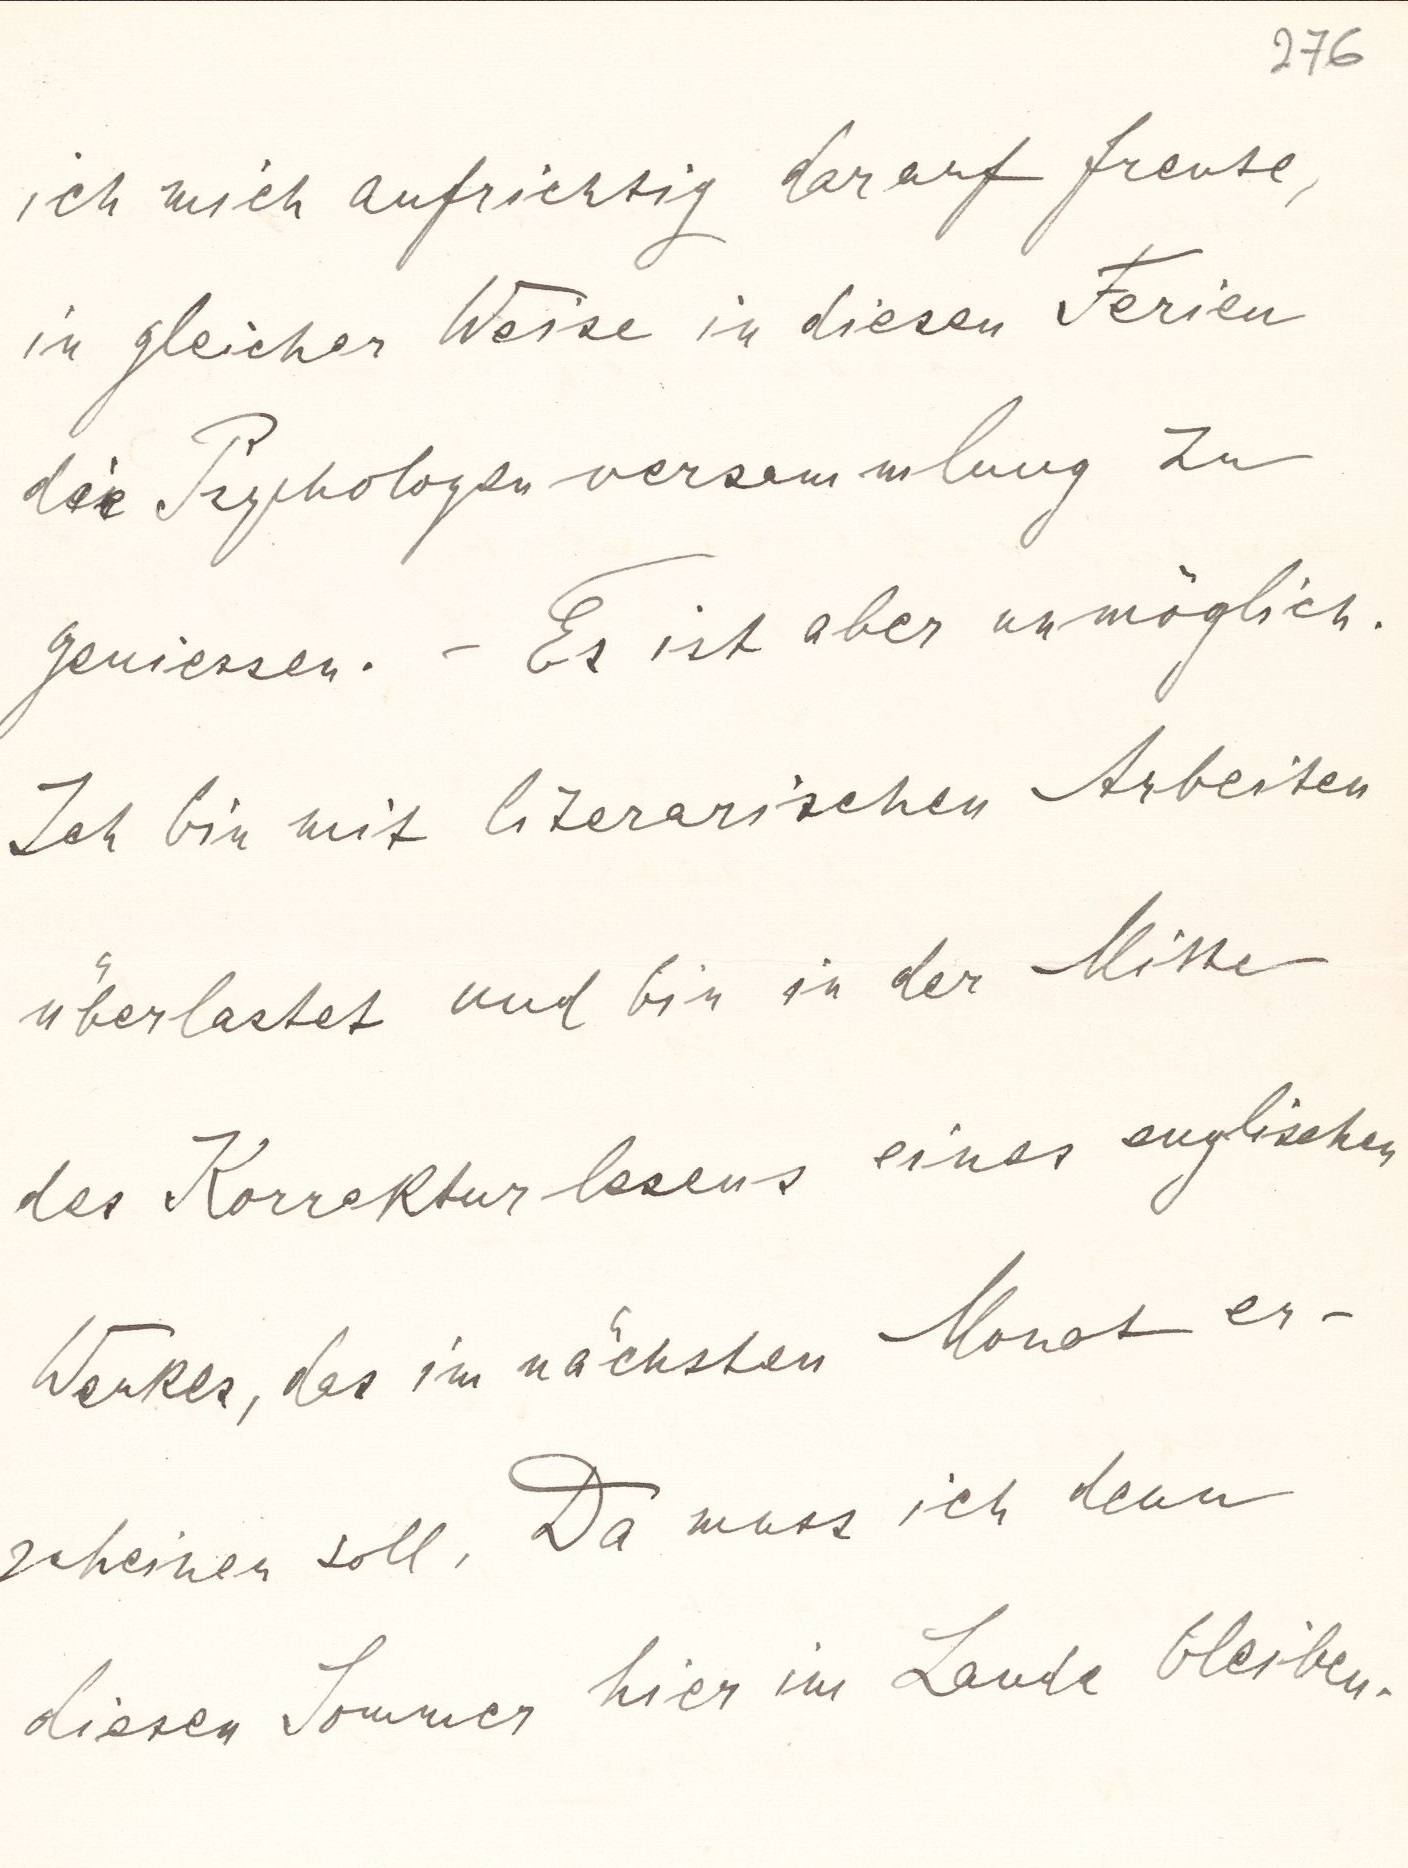 276
ich mich aufrichtig darauf freute,
in gleicher Weise in diesen Ferien
die Psychologenversammlung zu
geniessen. - Es ist aber unmöglich.
Ich bin mit literarischen Arbeiten
überlastet und bin in der Mitte
des Korrekturlesens eines englischen
Werkes, das im nächsten Monat er-
scheinen soll. Da muss ich denn
diesen Sommer hier im Lande bleiben.